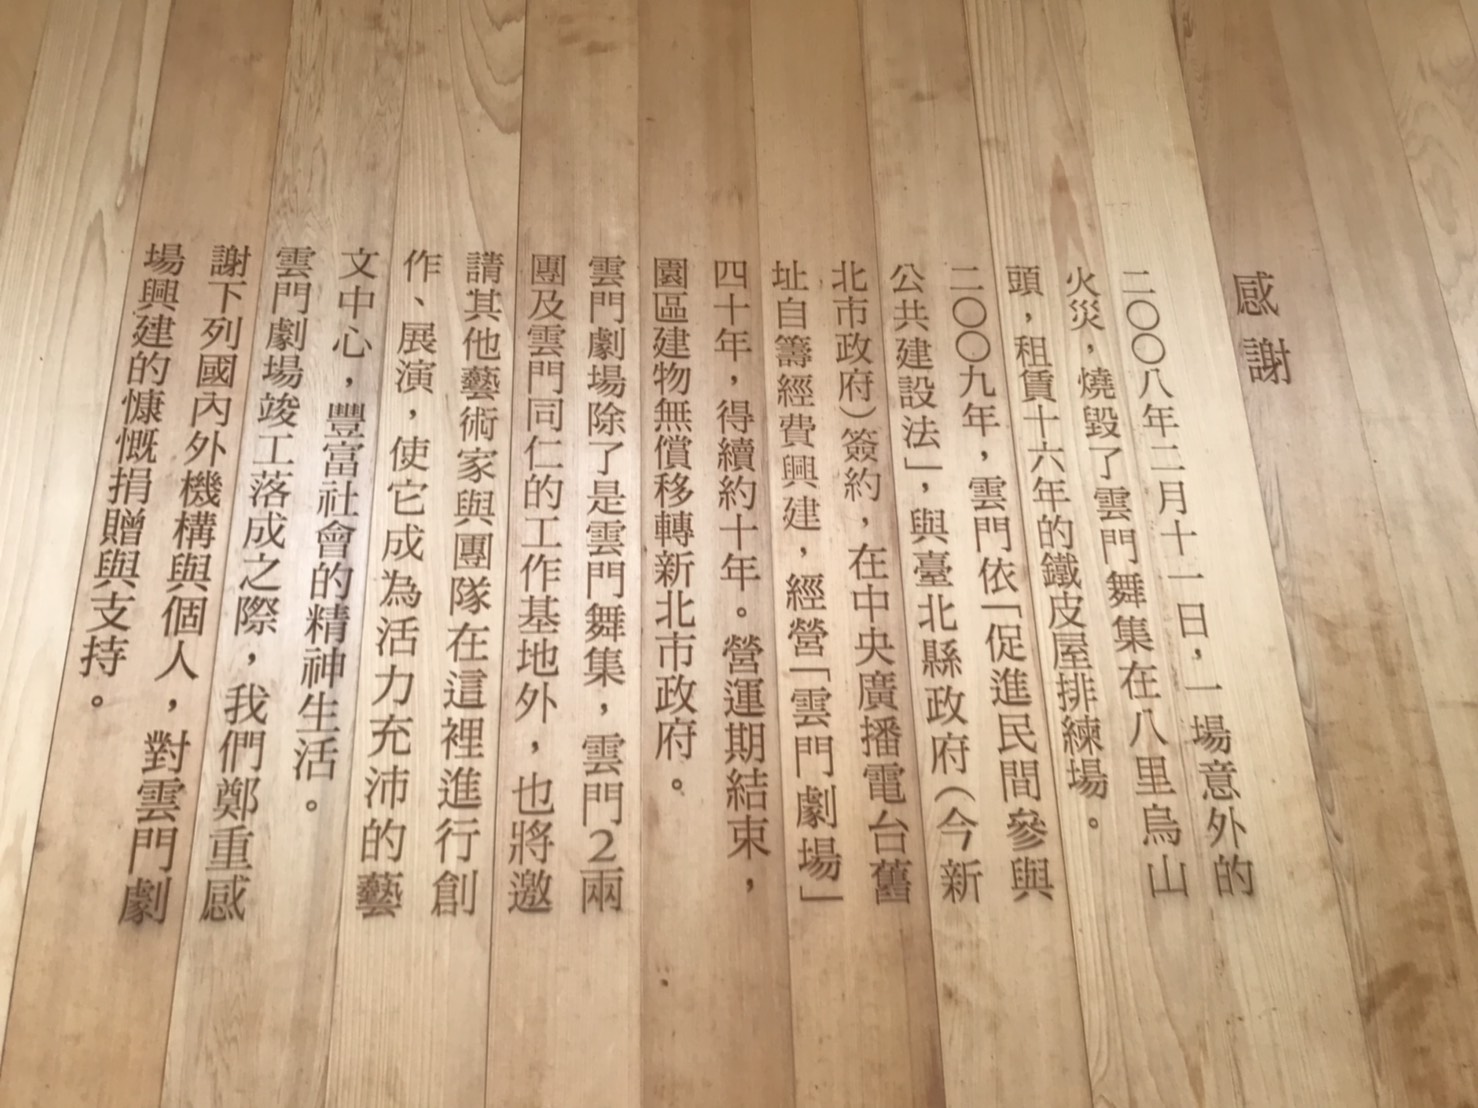 感謝
二〇〇八年二月十一日，一場意外的
火災，燒毀了雲門舞集在八里烏山
頭，租賃十六年的鐵皮屋排練場。
二〇〇九年，雲門依「促進民間參與
公共建設法」，與臺北縣政府（今新
北市政府）簽約，在中央廣播電台舊
址自籌經費興建，經營「雲門劇場」
四十年，得續約十年。營運期結束，
園區建物無償移轉新北市政府。
雲門劇場除了是雲門舞集，雲門2兩
團及雲門同仁的工作基地外，也將邀
請其他藝術家與團隊在這裡進行創
作、展演，使它成為活力充沛的藝
文中心，豐富社會的精神生活。
雲門劇場竣工落成之際，我們鄭重感
謝下列國內外機構與個人，對雲門劇
場興建的慷慨捐贈與支持。